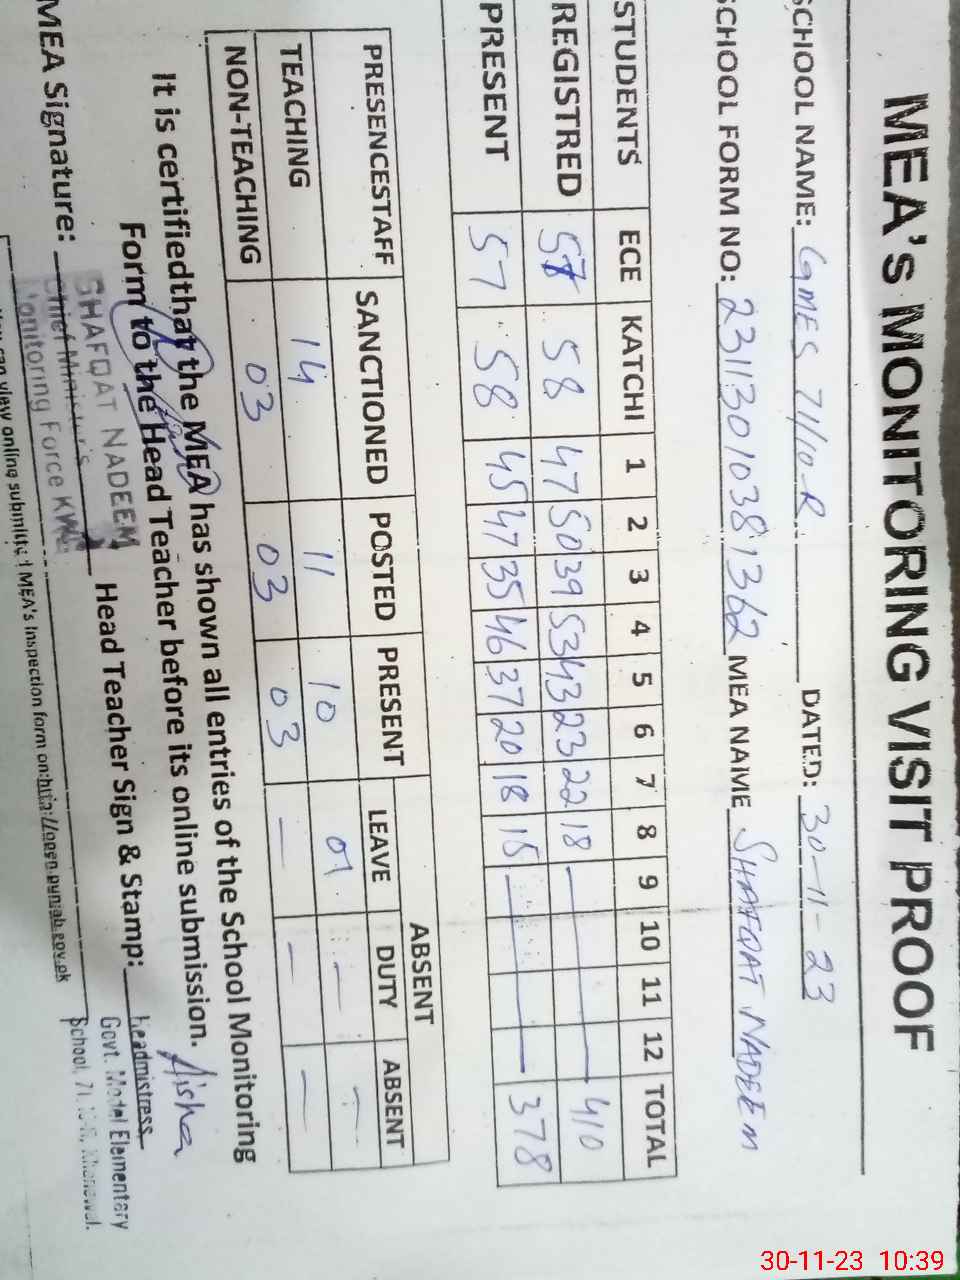 MEA's MONITORING VISIT PROOF
SCHOOL NAME: GMES 71/10-R DATED: 30-11-23
SCHOOL FORM NO: 23113010381362 MEA NAME SHAFQAT NADEEM
STUDENTS ECE KATCHI 1 2 3 4 5 6 7 8 9 10 11 12 TOTAL
REGISTRED 57 58 47 50 39 53 43 23 22 18 — 410
PRESENT 57 58 45 47 35 46 37 20 18 15 — 378
ABSENT
PRESENCESTAFF SANCTIONED POSTED PRESENT LEAVE DUTY ABSENT
TEACHING 14 11 10 01 — —
NON-TEACHING 03 03 03 — — —
It is certifiedthat the MEA has shown all entries of the School Monitoring
Form to the Head Teacher before its online submission. Aisha
MEA Signature: Head Teacher Sign & Stamp:
SHAFQAT NADEEM
Chief Minister's
Monitoring Force KWL
Headmistress
Govt. Model Elementary
School, 71.10-R, Khanewal.
You can view online submitted MEA's Inspection form on:
30-11-23 10:39